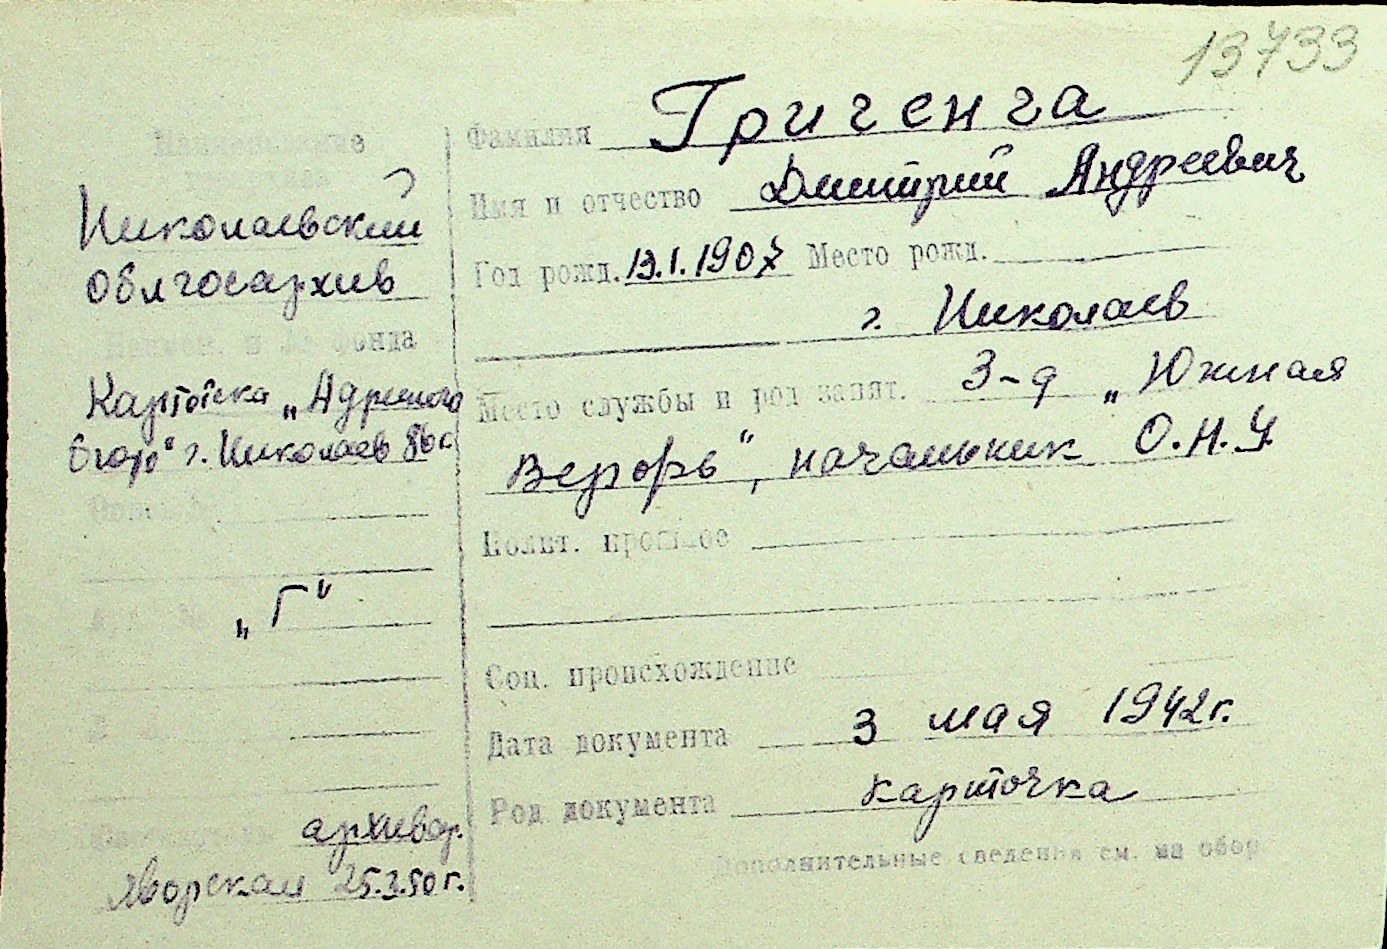 13733
Наименование
Николаевский
Облгосархив
Наимен. и № фонда
Картотека „Адресного
бюро“ г. Николаев
„Г“
архивар.
Яворская 25.3.50 г.
Фамилия Гриченча
Имя и отчество Дмитрий Андреевич
Год рожд. 13.1.1907 Место рожд.
г. Николаев
Место службы и род занят. З-д „Южная
Верфь“, начальник О.Н.У.
Полит. прошлое
Соц. происхождение
Дата документа 3 мая 1942 г.
Род документа карточка
Дополнительные сведения см. на обор.